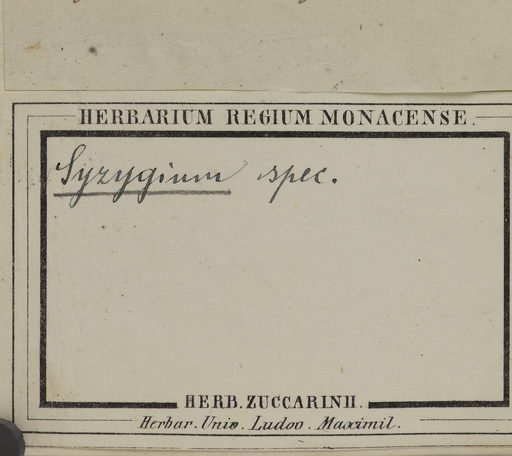 HERBARIUM REGIUM MONACENSE.
Syzygium spec.
HERB. ZUCCARINII.
Herbar. Univ. Ludov. Maximil.